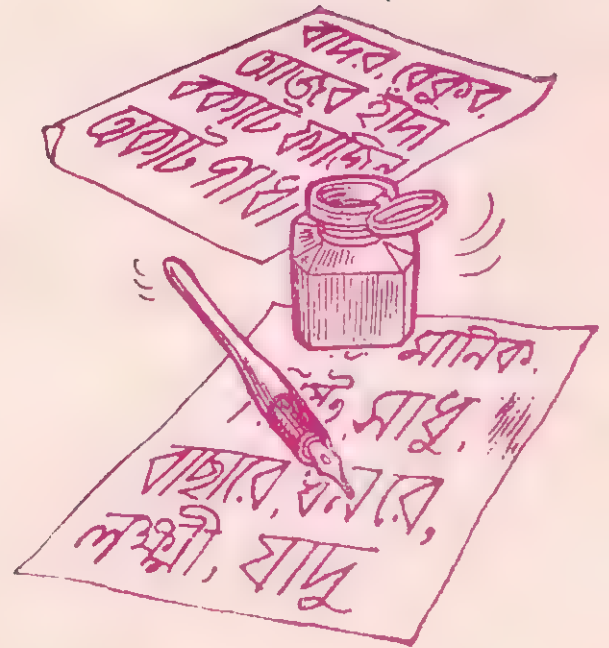 বাঁদর, বেকুব,
আজব হাঁদা
বকাট ফাজিল
অকাট গাধা
মানিক,
সাধু,
বাছারে, ধনরে,
লক্ষ্মী, যাদু